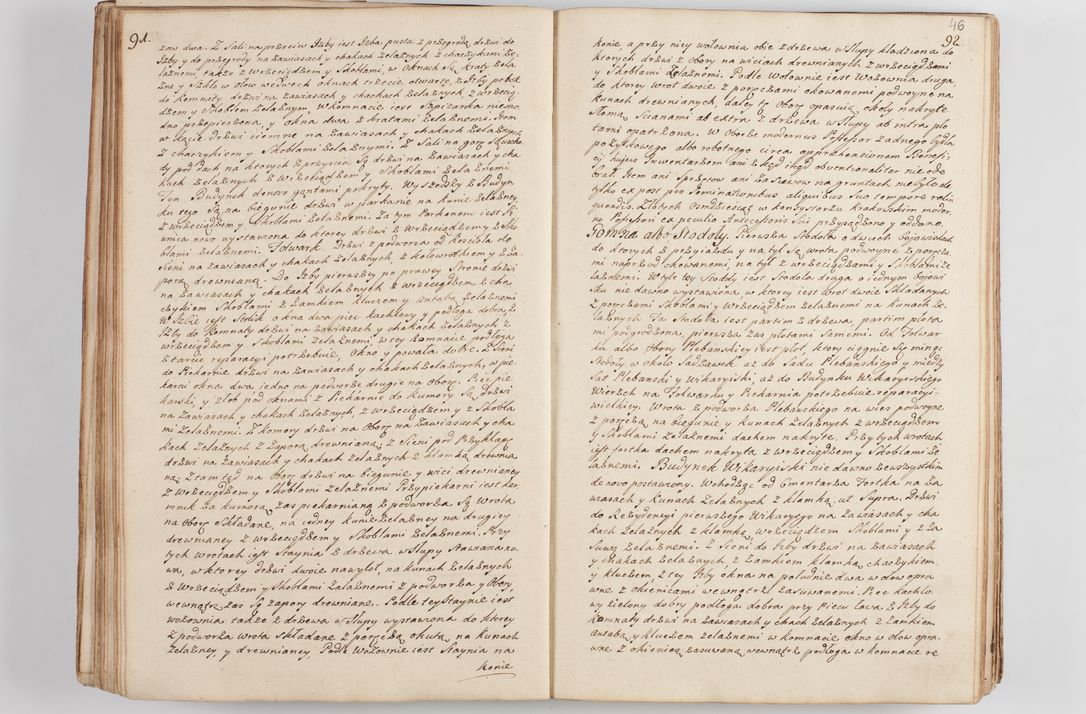 91.
zow dwa. Z Sali na przeciw Izby iest Izba pusta z przegrodą drzwi do
Izby y do przegrody na zawiasach y chakach żelaznych z chaczykami że-
laznemi także z wrzeciądzem y Skoblami, w oknach są kraty żela
zne y Szkło w ołow w dwoch oknach
do komnaty drzwi na zawiasach y chachach żelaznych z wrzecią-
dzem y Skoblem żelaznym. W komnacie iest Szpizarka niewo
dno przepierzona, y okna dwa z kratami żelaznemi. Item
drzwi ciemne na zawiasach y chakach żelaznych
z chaczykiem y Skoblami żelaznymi. Z Sali na gorę są wscho
dy pod dach na ktorych z przyścia są drzwi na zawiasach y cha
kach żelaznych z wrzeciądzem y Skoblami żelaznemi
Ten Budynek denovo gontami pokryty. Wyszedszy z Budyn
ku tego są na biegunie drzwi w parkanie na kunie żelazney
z wrzeciądzem y Skoblami żelaznemi. Za tym Parkanem iest Pi
wnica nowo wystawiona do ktorey drzwi z wrzeciądzem y Sko
blami żelaznemi. Folwark. Drzwi z podworza od Kościoła do
Sieni na zawiasach y chakach żelaznych, z kołowrotkiem y za
porą drewnianą. Do Izby pierwszey po prawey Stronie drzwi
na zawiasach y chakach żelaznych z wrzeciądzem z cha
czykiem Skoblami z zamkiem kluczem y antabą żelaznemi
W Izbie iest Stolik okna dwa piec kachlowy y podłoga dobra, z
Izby do Komnaty drzwi na zawiasach y chakach żelaznych z
wrzeciądzem y Skoblami żelaznemi, w tey komnacie podłoga
z tarcic reparacyi potrzebuie, okno y powała dobre. Z Sieni
do Piekarnie drzwi na zawiasach y chakach żelaznych, w pie
karni okna dwa iedno na podworze drugie na Oborę. Piec pie
karski, y żłob pod oknami. z Piekarnie do kumory są drzwi
na zawiasach y chakach żelaznych z wrzeciądzem y z Skobla
mi żelaznemi. Z komory drzwi na Oborę na zawiasach y cha
kach żelaznych z zaporą drewnianą; z Sieni pod Przyklap
drzwi na zawiasach y chakach żelaznych z klamką drewnia
ną; z tamtąd na Obory drzwi na biegunie y wici drewnianey
z wrzeciądzem y Skoblami żelaznemi. Przy piekarni iest kar
mnik za kumorą zas piekarnianą z podworza są wrota
na Oborę Składane, na iedney kunie żelazney na drugiey
drewnianey z wrzeciądzem y Skoblami żelaznemi. Przy
tych wrotach iest Staynia z drzewa w Słupy stawiana no
wa, w ktorey drzwi dwoie na wylot, na kunach żelaznych
z wrzeciądzem y Skoblami żelaznemi z podworza y Obory,
wewnątrz zas są zapory drewniane. Podle tey Staynie iest
wozownia także z drzewa w Słupy wystawiona do ktorey
z podworza wrota Składane z poręczą okutą, na kunach
żelazney, y drewnianey. Podle wozownie iest Staynia na
konie
46
92
konie, a przy niey wołownia obie z drzewa w Słupy kładziona do
ktorych drzwi z Obory na wiciach drewnianych z wrzeciądzami
y Skoblami żelaznemi. Podle Wołownie iest Wozownia druga,
do ktorey wrot dwoie z poręczami okowanemi podwoyne na
kunach drewnianych, daley tę Oborę opasuią okoły nakryte
Słomą Scianami ab extra z drzewa w Słupy ab intra pło
tami opatrzona. W Oborze modernus Possessor żadnego bydła
pożytkowego albo robotnego circa apprehensionem Benefi-
cij hujus Inwentarzem ani z kąd inąd obventionaliter nie ode
brał. Item ani Sprzętow ani zasiewow na gruntach nie było ale
tylko ex post pro seminationibus aliquibus suo tempore relin
quendis. Złotych Ośmdziesiąt w konsystorzu krakowskim moder
no Possessori ex peculio Antecessoris Sui przysądzono y oddano.
Gumna albo Stodoły. Pierwsza Stodoła o dwuch boiowiskach
do ktorych z przyiazdu y na tył są wrota podwoyne z poręcza
mi naprzod okowanemi, na tył z wrzeciądzami y Skoblami że
laznemi. W tyle tey Stodoły iest Stodoła druga o iednym boiowi
sku nie dawno wystawiona, w ktorey iest wrot dwoie Składanych
z poręczami Skoblami y wrzeciądzem żelaznemi na kunach że
laznych. Ta Stodoła iest partim z drzewa, partim płota
mi pogrodzona, pierwsza zas płotami Samemi. Od Folwar
ku albo Obory Plebanskiey iest płot, ktory ciągnie się mimo
Stodoły w około Sadzawek aż do Sadu Plebanskiego y między
Sad Plebanski y Wikaryiski, aż do Budynku Wikaryiskiego
Wierzch na Folwarku y Piekarnia potrzebuie reparacyi-
wielkiey. Wrota z podworza Plebanskiego na wies podwoyne
z poręczą na biegunie y kunach żelaznych z wrzeciądzem
y Skoblami żelaznemi dachem nakryte. Przy tych wrotach
iest fortka dachem nakryta z wrzeciądzem y Skoblami że
laznemi. Budynek Wikaryiski nie dawno ze wszystkim
de novo postawiony. Wchodząc od Cmentarza Fortka na za
wiasach y kunach żelaznych z klamką. ut Supra. Drzwi
do Rezydencyi pierwszego Wikarego na zawiasach y cha
kach żelaznych z klamką, wrzeciądzem Skoblami y z za
suwą żelaznemi. Z Sieni do Izby drzwi na zawiasach
y chakach żelaznych z zamkiem klamką chaczykiem
y kluczem, z tey Izby okna na południe dwa w ołow opra
wne z okienicami wewnątrz zasuwanemi. Piec kachlo-
wy zielony dobry podłoga dobra przy Piecu Ława. Z Izby do
komnaty drzwi na zawiasach y chakach żelaznych z zamkiem
antabą y kluczem żelaznemi w komnacie okno w ołow opra-
wne z okienicą zasuwaną wewnątrz podłoga w komnacie re